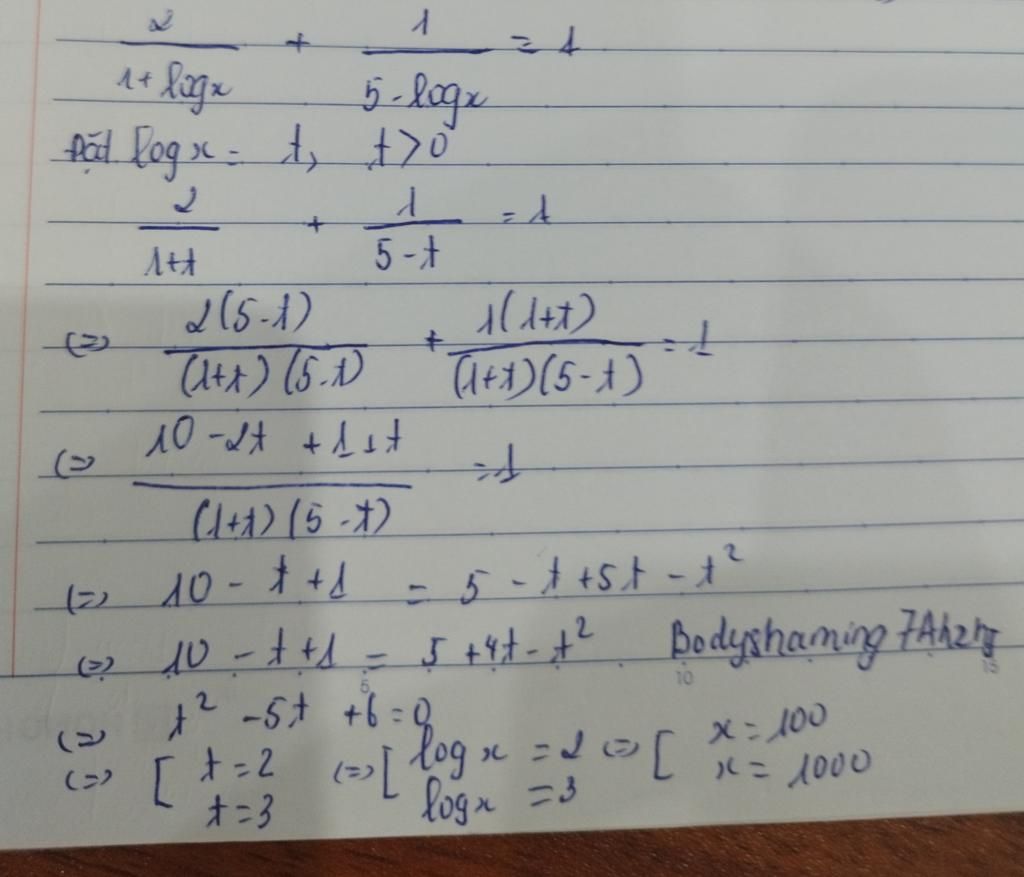 2/(1+logx) + 1/(5-logx) = 1
Đặt logx = t, t>0
2/(1+t) + 1/(5-t) = 1
(=) 2(5-t)/((1+t)(5-t)) + 1(1+t)/((1+t)(5-t)) = 1
(=) (10-2t+1+t)/((1+t)(5-t)) = 1
(=) 10 - t + 1 = 5 - t + 5t - t²
(=) 10 - t + 1 = 5 + 4t - t² Bodyshaming 7Ahzhg
5 10 15
(=) t² - 5t + 6 = 0
(=) [ t = 2 (=) [ logx = 2 (=) [ x = 100
t = 3 logx = 3 x = 1000